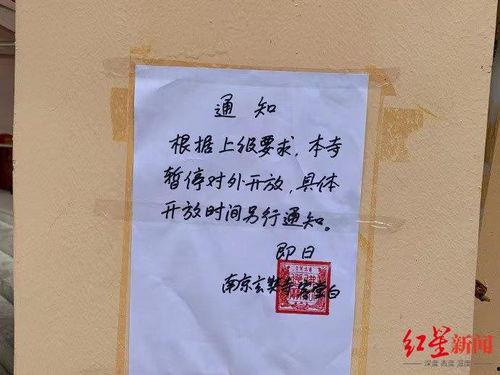 通知
根据上级要求,本寺
暂停对外开放,具体
开放时间另行通知。
即日
南京玄奘寺客堂白
红星新闻
深度 态度 温度